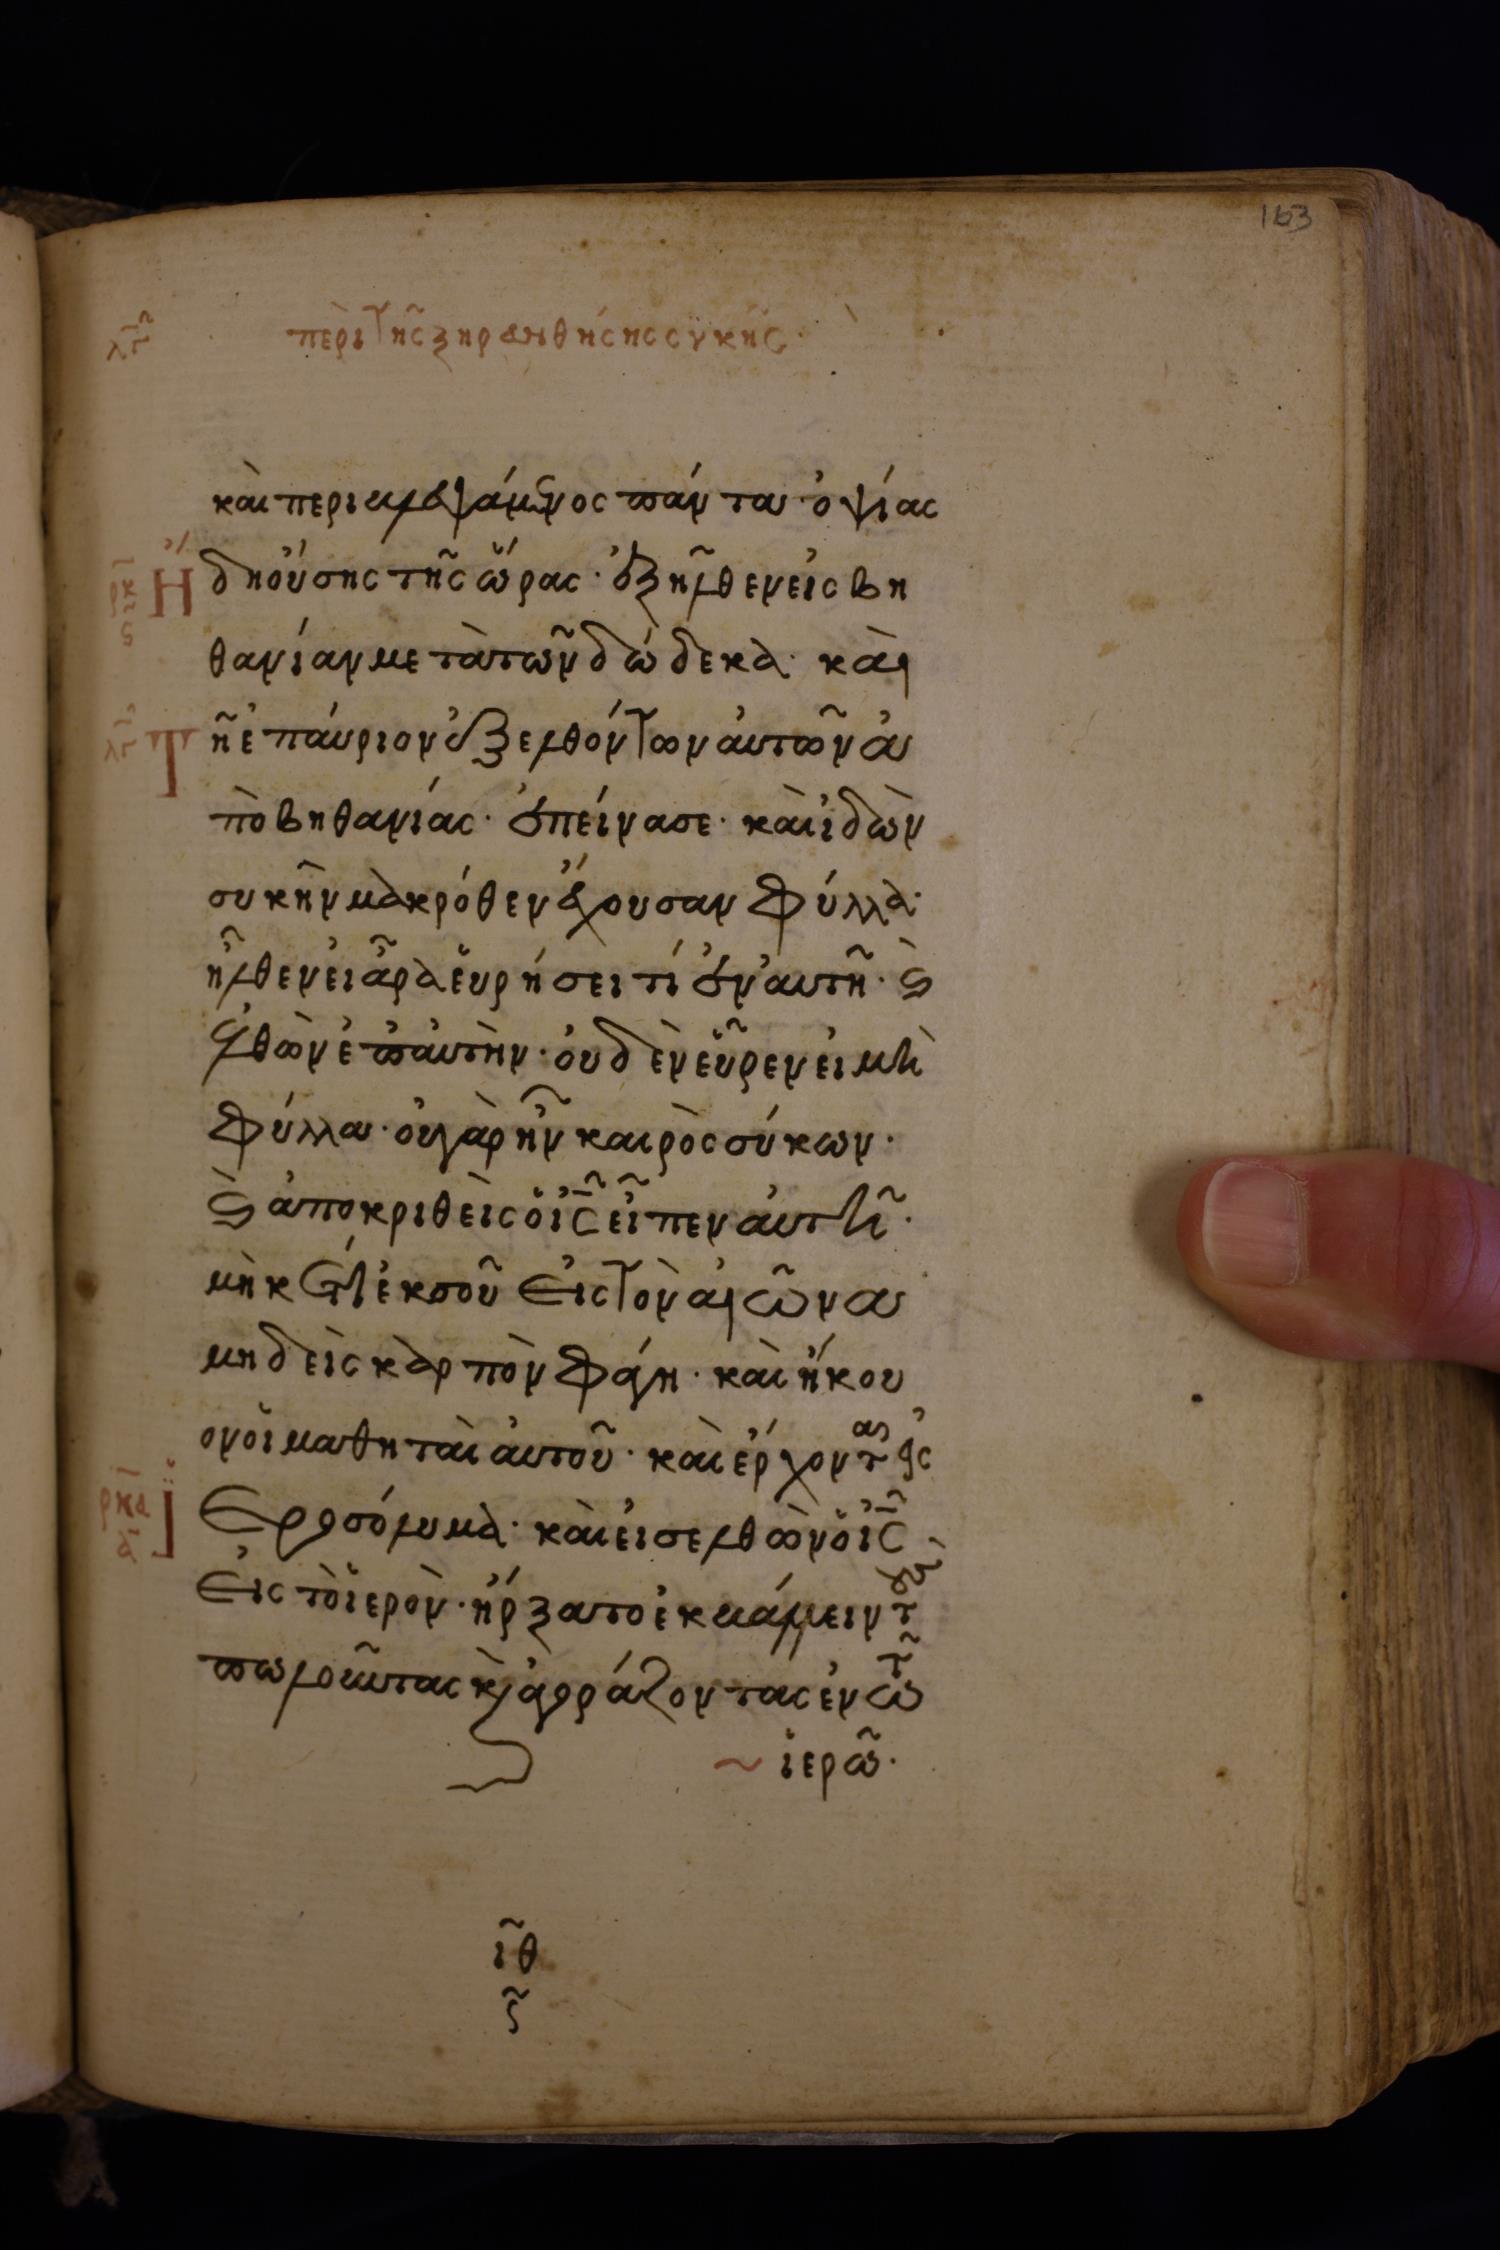 163
λγ περὶ τῆς ξηρανθήσης συκῆς·
καὶ περιβλεψάμενος πάντα· ὀψίας
ρκ
ς
Ἤ δη οὔσης τῆς ὥρας· ἐξῆλθεν εἰς βη
θανίαν μετὰ τῶν δώδεκα· καὶ
λγ Τ ῆ ἐπαύριον ἐξελθόντων αὐτῶν ἀ
πὸ βηθανίας· ἐπείνασε· καὶ ἰδὼν
συκῆν μακρόθεν ἔχουσαν φύλλα·
ἦλθεν εἰ ἆρα εὑρήσει τί ἐν αὐτῆ· ϛ
ἐλθὼν ἐπ αὐτὴν· οὐδὲν εὗρεν εἰ μὴ
φύλλα· οὐ γὰρ ἦν καιρὸς σύκων·
ϛ ἀποκριθεὶς ὁ ἰς εἶπεν αὐτῆ·
μὴκέτι ἐκ σοῦ εἰς τὸν αἰῶνα
μηδεὶς καρπὸν φάγη· καὶ ἤκου
ον οἱ μαθηταὶ αὐτοῦ· καὶ ἔρχονται εἰς
ρκα
α
Ἱ εροσόλυμα· καὶ εἰσελθὼν ὁ ἰς
εἰς τὸ ἱερὸν· ἤρξατο ἐκβάλλειν τοὺς
πωλοῦντας κ ἀγοράζοντας ἐν τῶ
ἱερῶ·
ιθ
ς